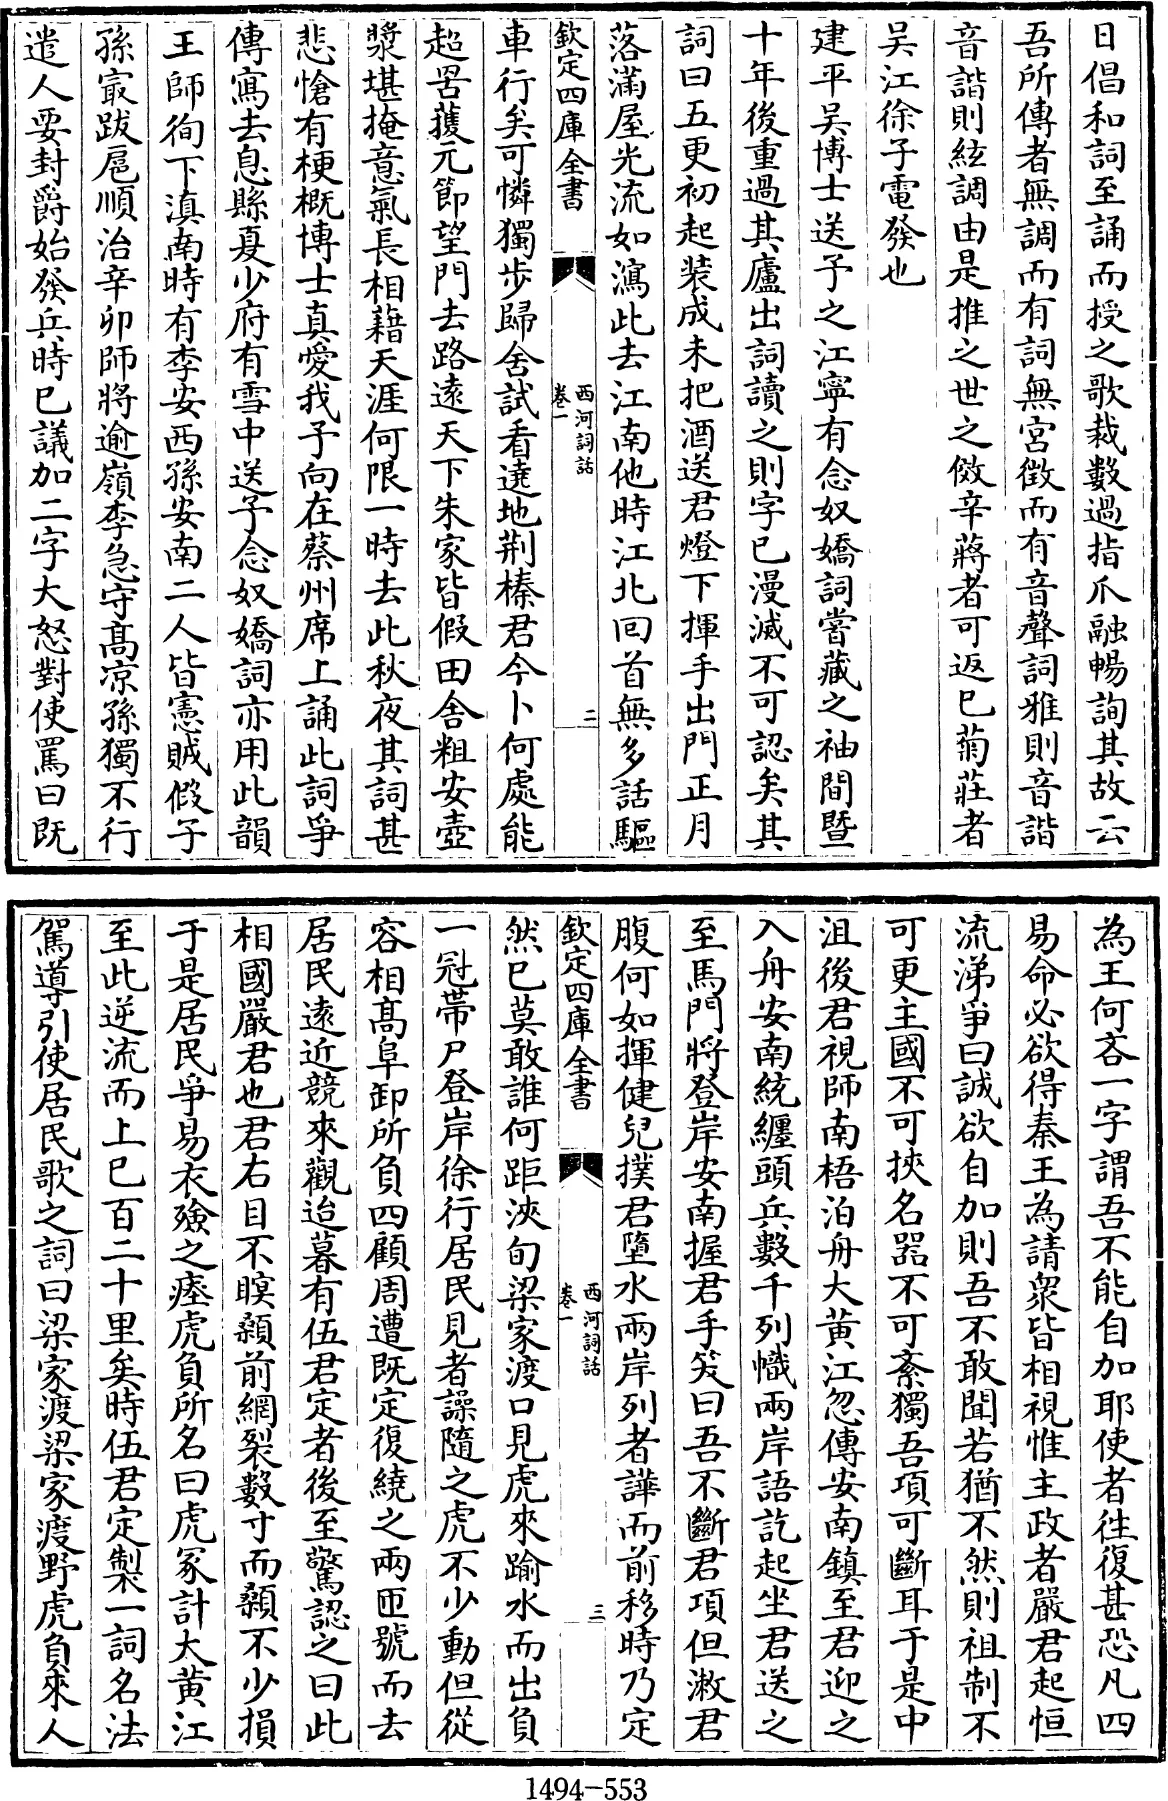 日倡和詞至誦而授之歌裁數過指爪融暢詢其故云
吾所傳者無調而有詞無宮徵而有音聲詞雅則音諧
音諧則絃調由是推之世之傚辛蔣者可返已菊莊者
吳江徐子電發也
建平吳博士送予之江寧有念奴嬌詞嘗藏之袖間暨
十年後重過其廬出詞讀之則字已漫滅不可認矣其
詞曰五更初起裝成未把酒送君燈下揮手出門正月
落滿屋光流如瀉此去江南他時江北回首無多話驅
欽定四庫全書
西河詞話
卷一
二
車行矣可憐獨步歸舍試看遶地荆榛君今卜何處能
超罟擭元節望門去路遠天下朱家皆假田舍粗安壺
漿堪掩意氣長相藉天涯何限一時去此秋夜其詞甚
悲愴有梗概博士真愛我予向在蔡州席上誦此詞爭
傳寫去息縣夏少府有雪中送予念奴嬌詞亦用此韻
王師徇下滇南時有李安西孫安南二人皆憲賊假子
孫㝡跋扈順治辛卯師將逾嶺李急守髙凉孫獨不行
遣人要封爵始發兵時已議加二字大怒對使罵曰既
為王何吝一字謂吾不能自加耶使者往復甚恐凡四
易命必欲得秦王為請衆皆相視惟主政者嚴君起恒
流涕爭曰誠欲自加則吾不敢聞若猶不然則祖制不
可更主國不可挾名器不可紊獨吾項可斷耳于是中
沮後君視師南梧泊舟大黄江忽傳安南鎮至君迎之
入舟安南統纏頭兵數千列幟兩岸語訖起坐君送之
至馬門將登岸安南握君手笑曰吾不斷君項但漱君
腹何如揮健兒撲君墮水兩岸列者譁而前移時乃定
欽定四庫全書
西河詞話
卷一
三
然已莫敢誰何距浹旬梁家渡口見虎來踰水而出負
一冠帶尸登岸徐行居民見者譟隨之虎不少動但從
容相髙阜卸所負四顧周遭既定復繞之兩匝號而去
居民遠近競來觀迨暮有伍君定者後至驚認之曰此
相國嚴君也君右目不瞑顙前網裂數寸而顙不少損
于是居民爭易衣殮之瘞虎負所名曰虎冢計大黄江
至此逆流而上已百二十里矣時伍君定製一詞名法
駕導引使居民歌之詞曰梁家渡梁家渡野虎負來人
1494-553